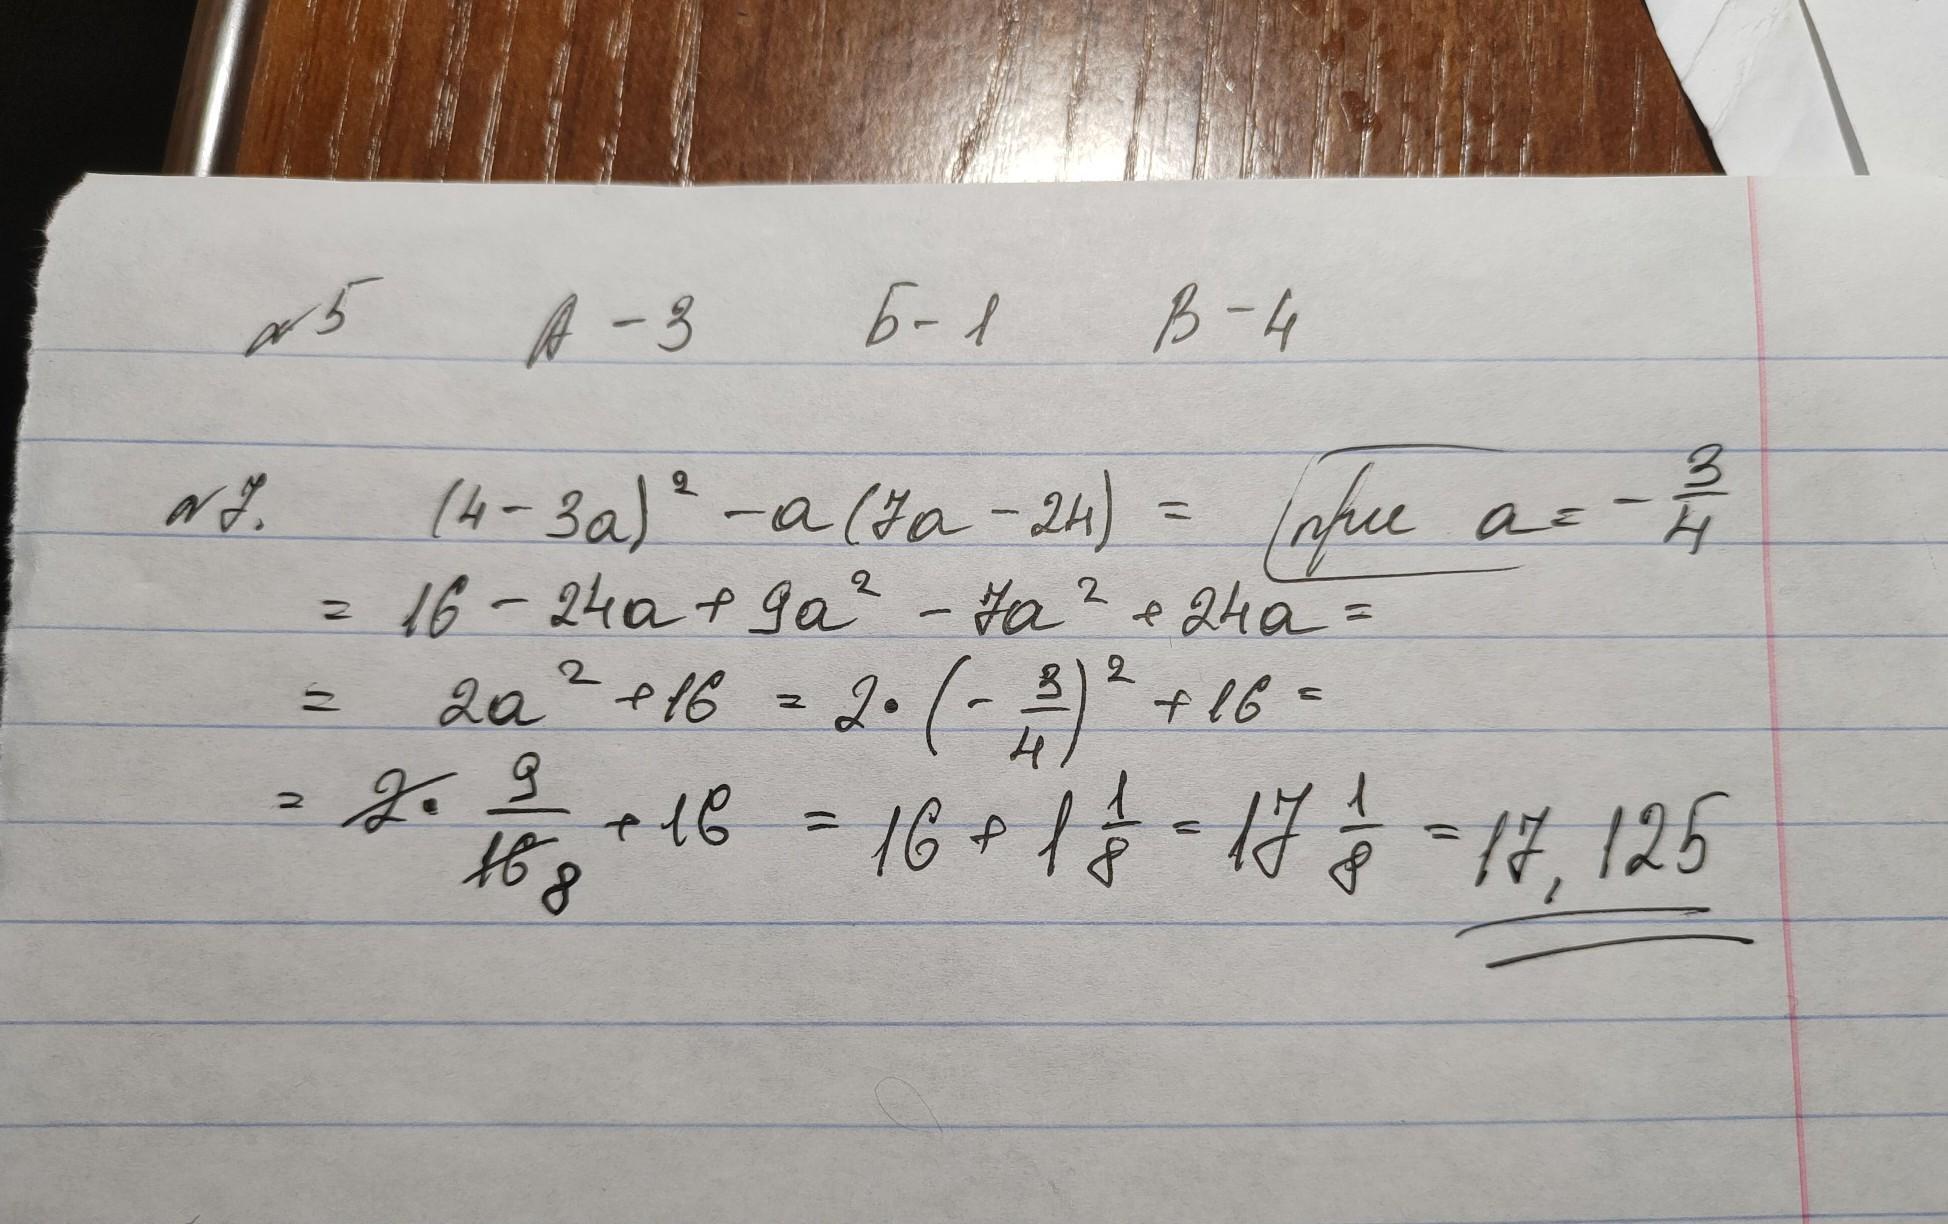 №5 А - 3 Б - 1 В - 4
№7. (4 - 3a)² - a(7a - 24) = при a = - 3/4
= 16 - 24a + 9a² - 7a² + 24a =
= 2a² + 16 = 2 · (- 3/4)² + 16 =
= 2 · 9/16 8 + 16 = 16 + 1 1/8 = 17 1/8 = 17,125